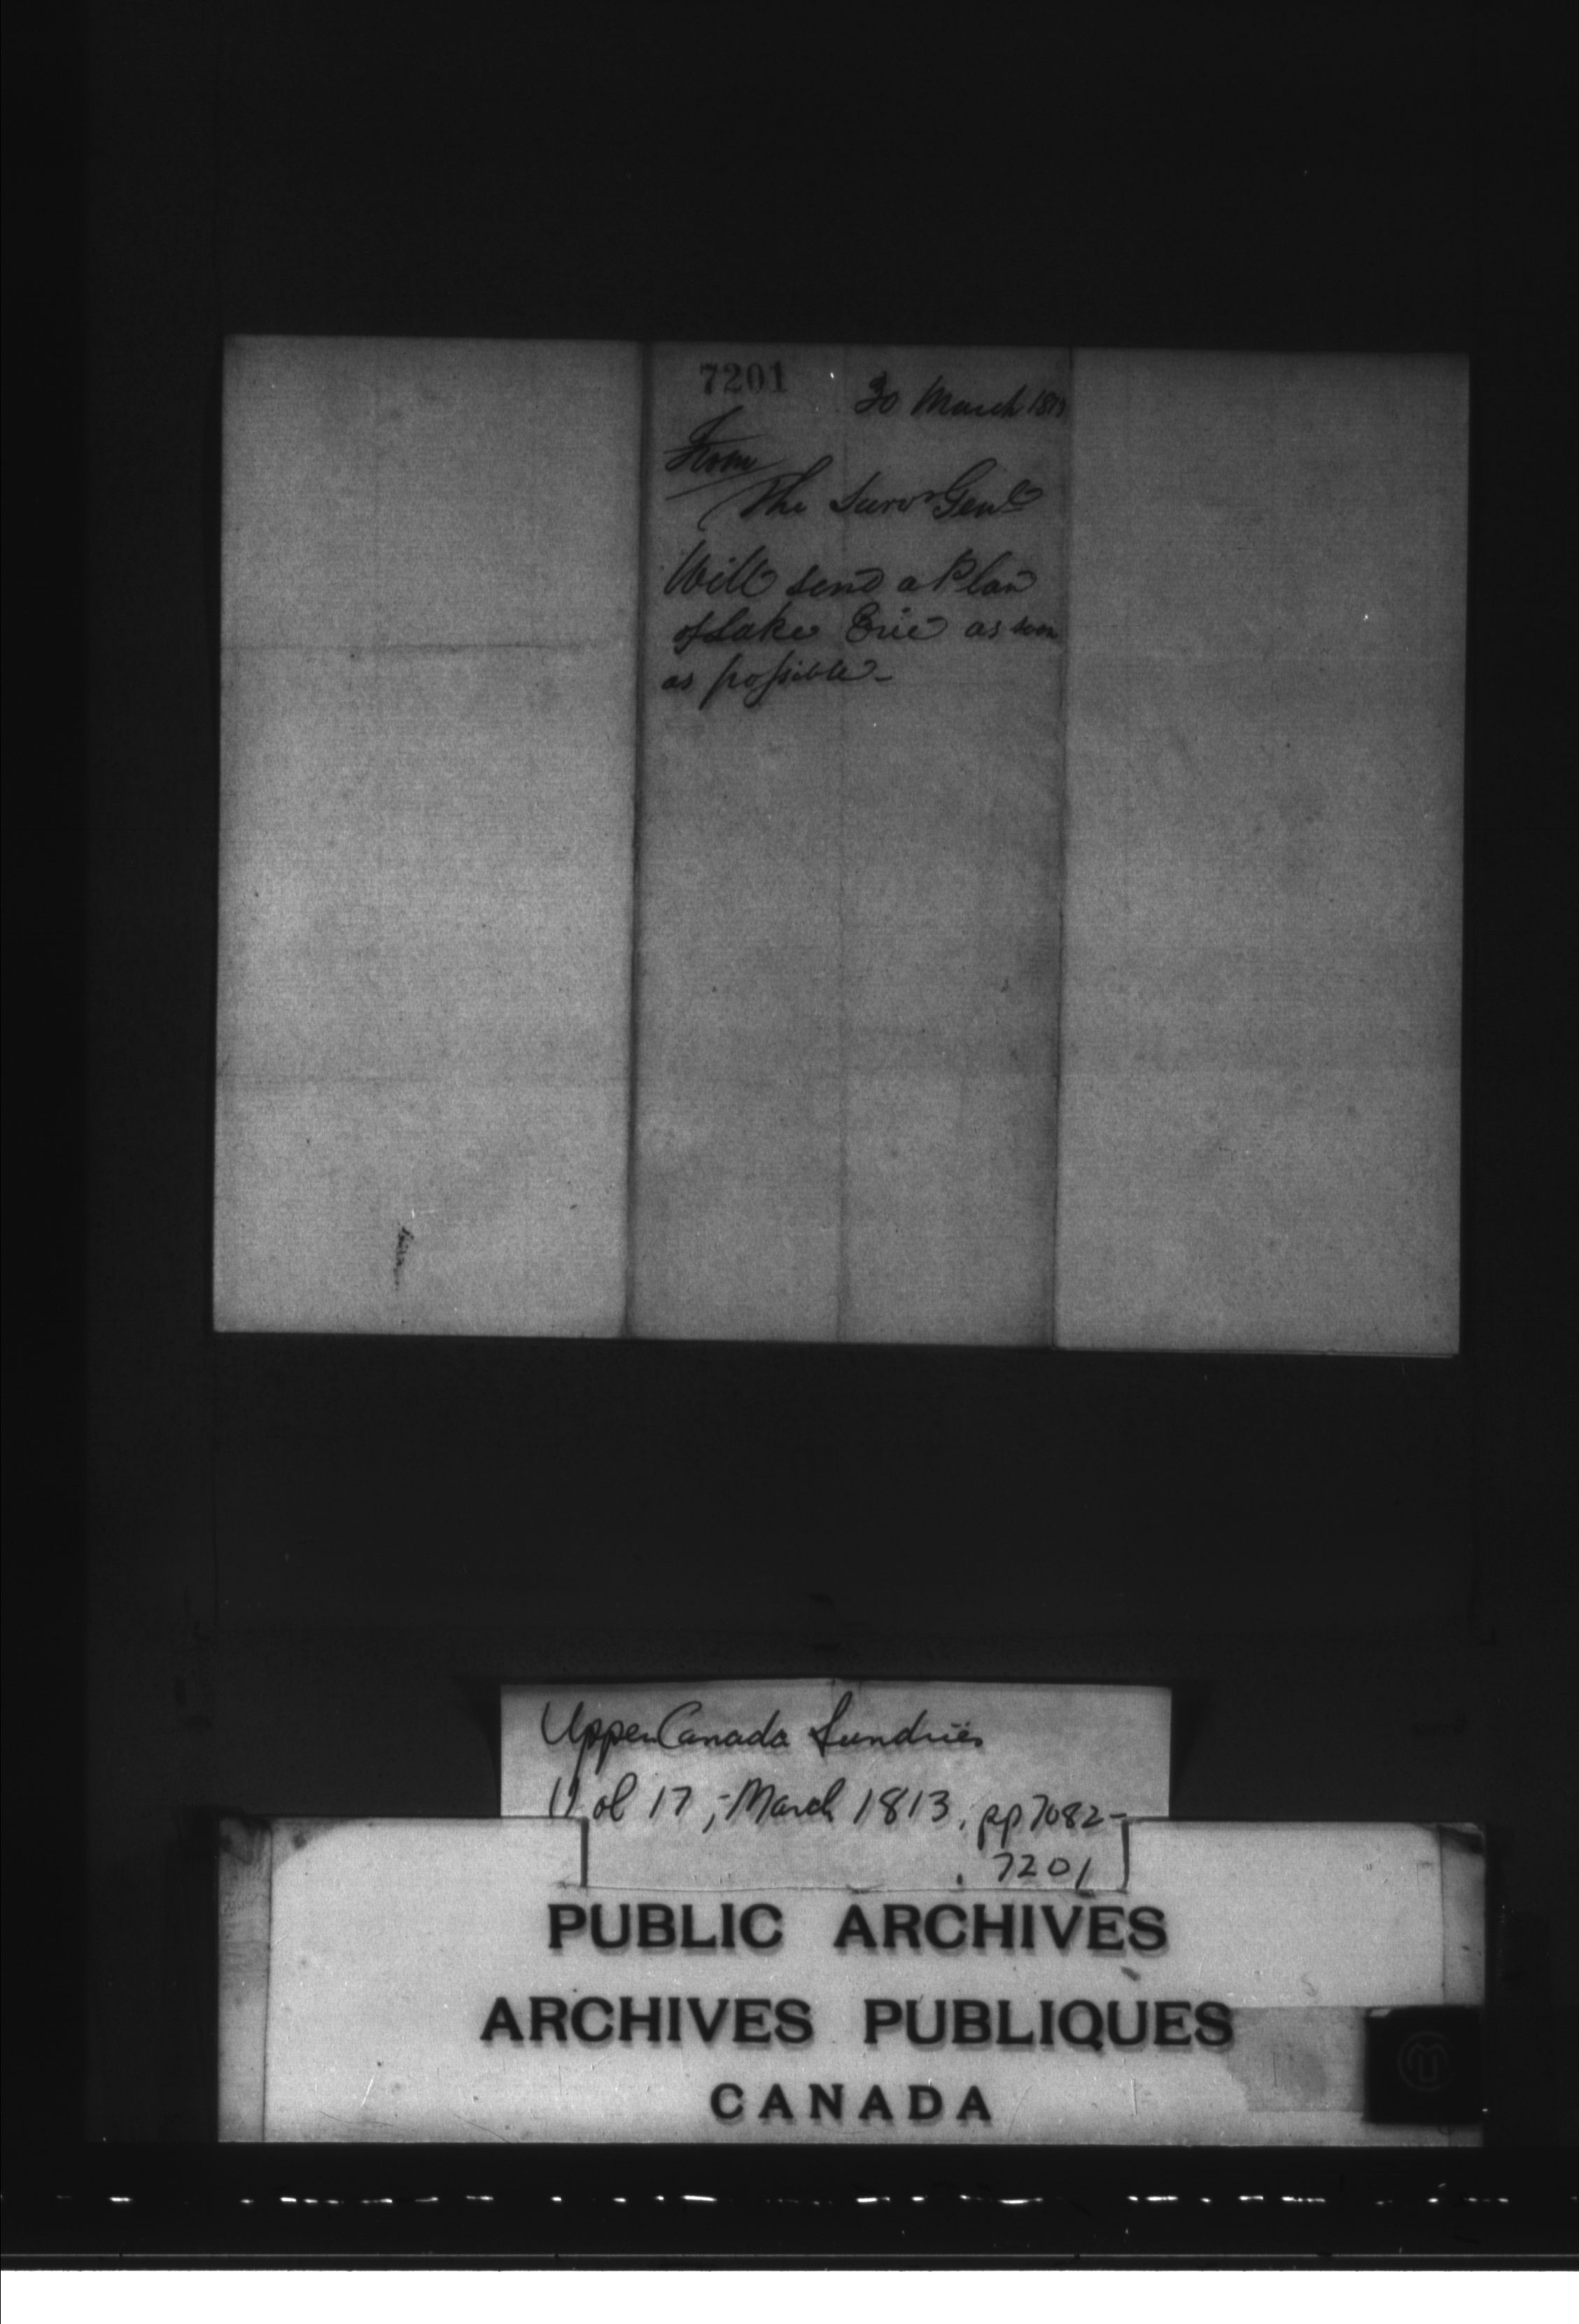 7201
30 March 1813
From
The Survr Genl
Will send a Plan
of Lake Erie as soon
as possible -
Upper Canada Sundries
Vol 17, - March 1813, pp 7082-
7201
PUBLIC ARCHIVES
ARCHIVES PUBLIQUES
CANADA